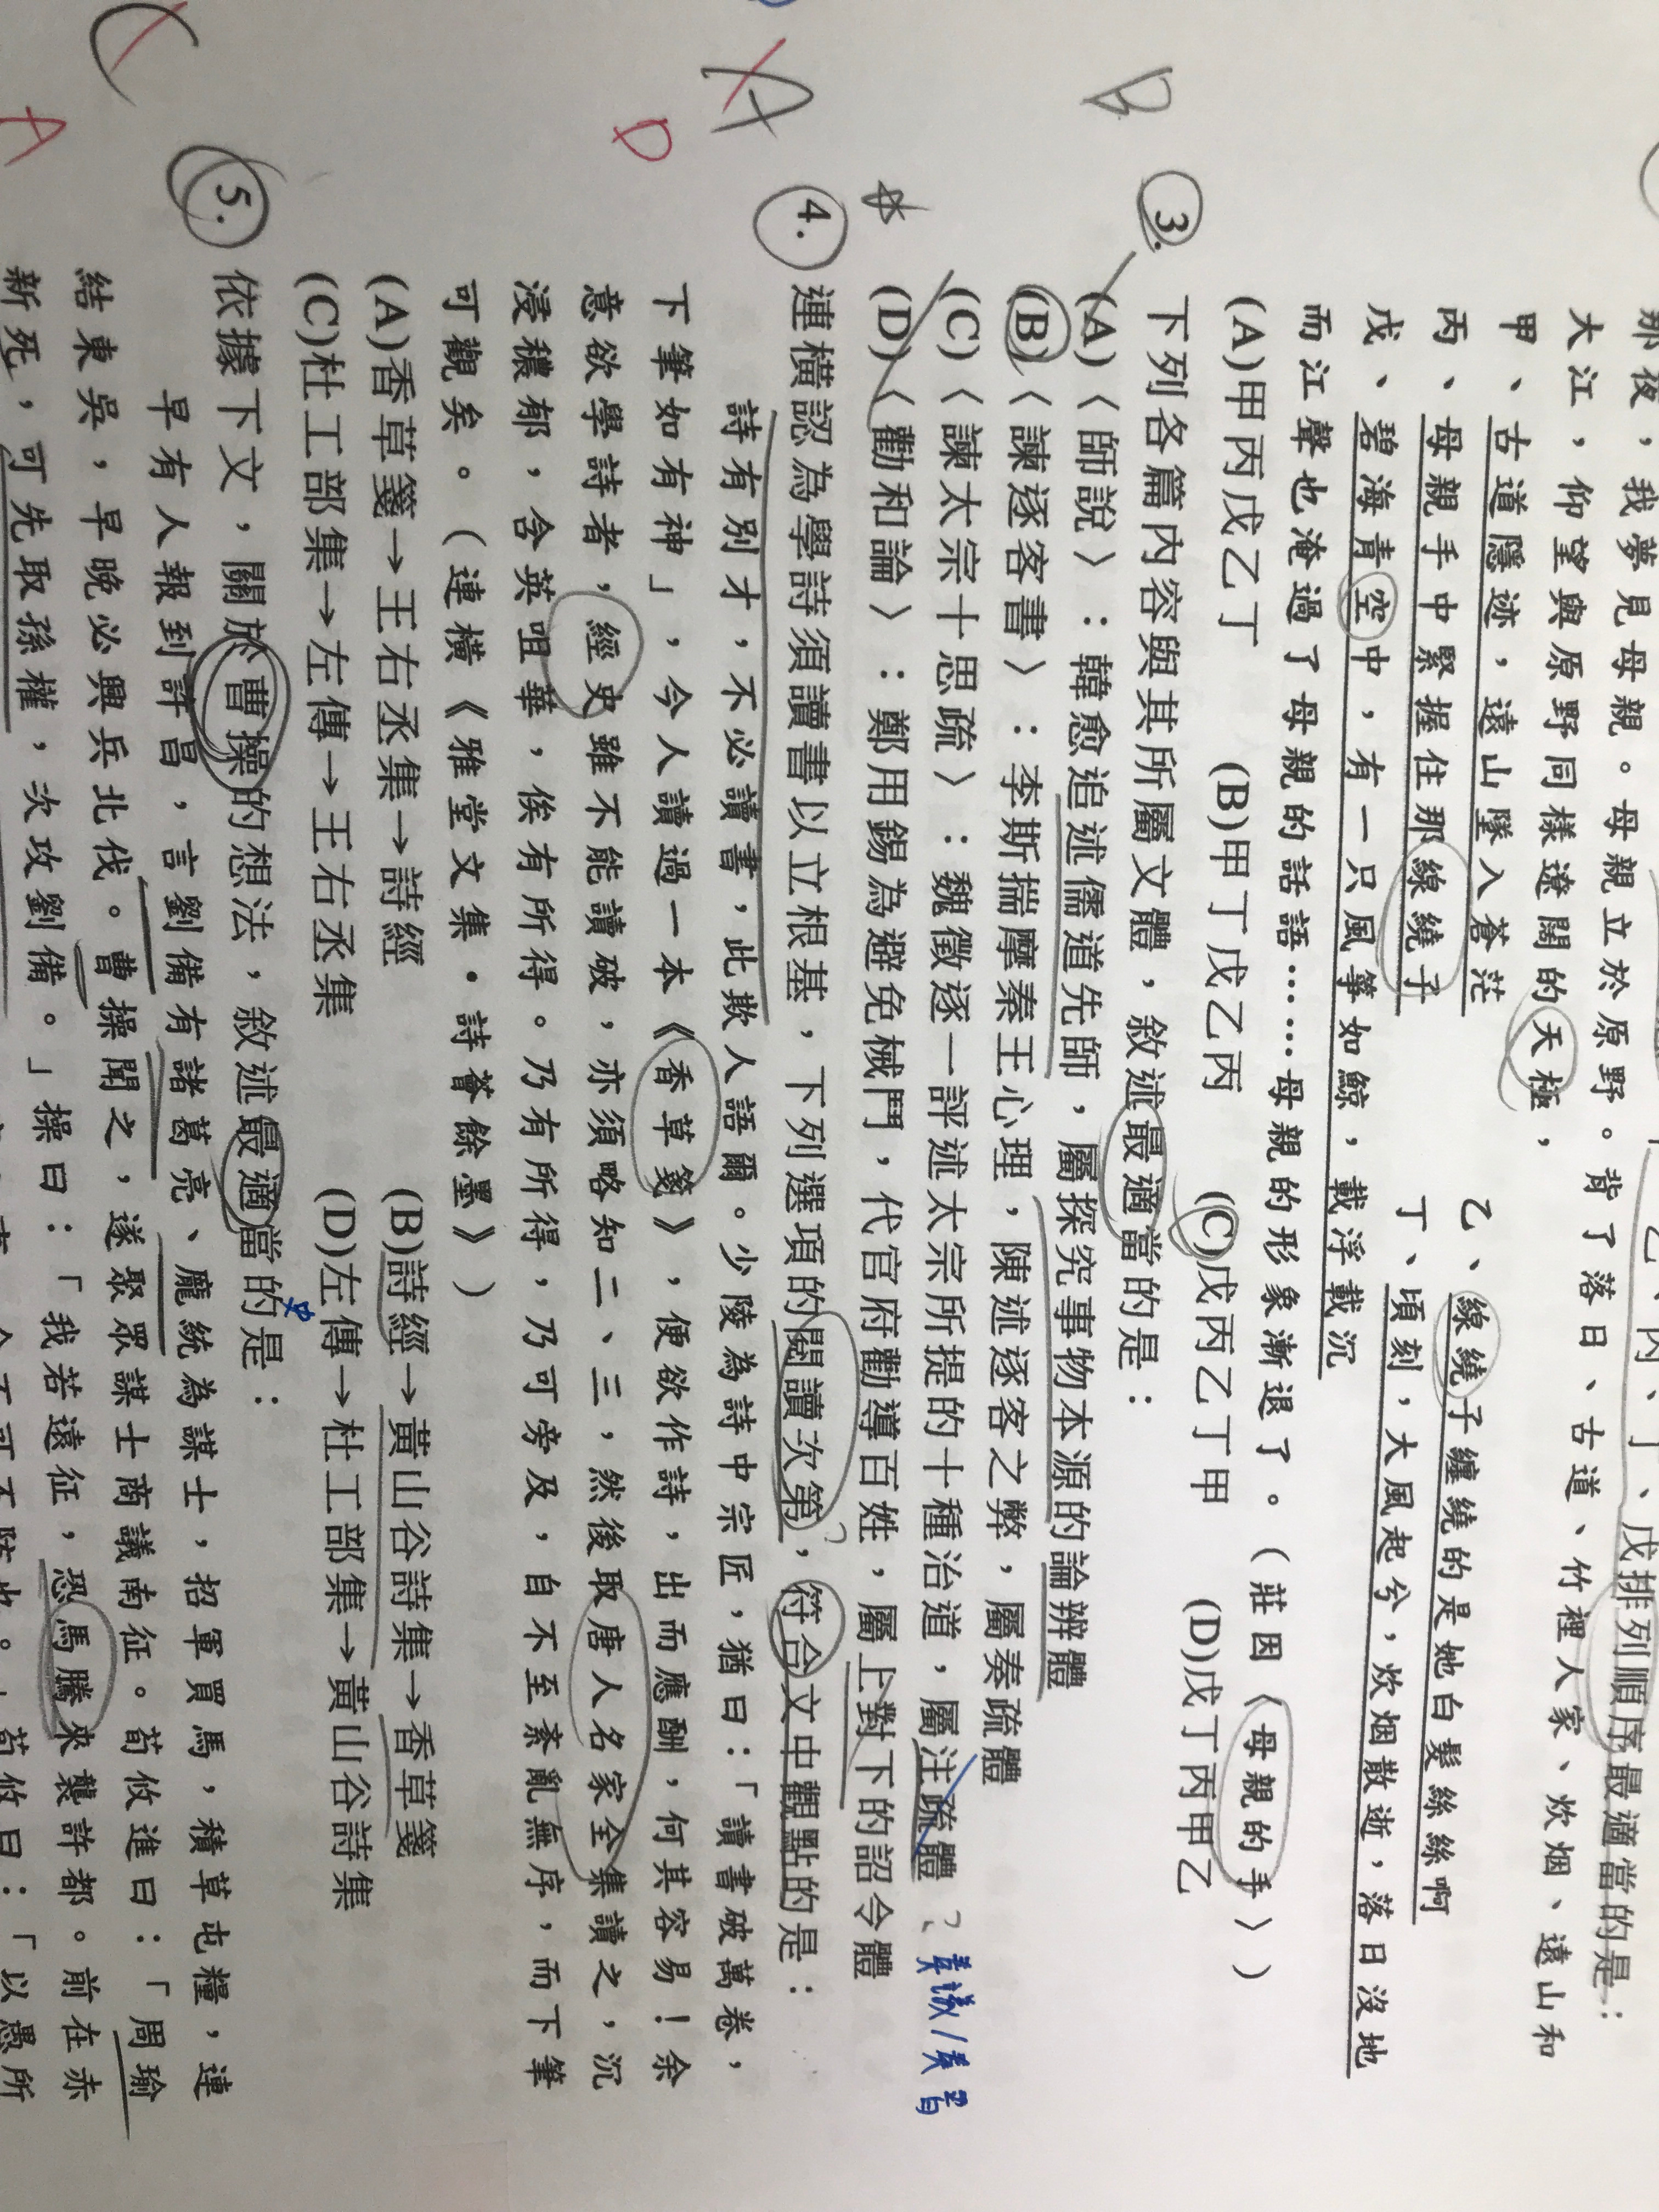 那夜，我夢見母親。母親立於原野。背了落日、古道、竹裡人家、炊烟、遠山和
大江，仰望與原野同樣遼闊的天極，
甲、古道隱迹，遠山墜入蒼茫
乙、線繞子纏繞的是她白髮絲絲啊
丙、母親手中緊握住那線繞子
丁、頃刻，大風起兮，炊烟散逝，落日沒地
戊、碧海青空中，有一只風箏如鯨，載浮載沉
而江聲也淹過了母親的話語……母親的形象漸退了。（莊因〈母親的手〉）
(A)甲丙戊乙丁
(B)甲丁戊乙丙
(C)戊丙乙丁甲
(D)戊丁丙甲乙
B
3. 下列各篇內容與其所屬文體，敘述最適當的是：
(A)〈師說〉：韓愈追述儒道先師，屬探究事物本源的論辨體
(B)〈諫逐客書〉：李斯揣摩秦王心理，陳述逐客之弊，屬奏疏體
(C)〈諫太宗十思疏〉：魏徵逐一評述太宗所提的十種治道，屬注疏體
(D)〈勸和論〉：鄭用錫為避免械鬥，代官府勸導百姓，屬上對下的詔令體
A
D
4. 連橫認為學詩須讀書以立根基，下列選項的閱讀次第，符合文中觀點的是：
詩有別才，不必讀書，此欺人語爾。少陵為詩中宗匠，猶曰：「讀書破萬卷，
下筆如有神」，今人讀過一本《香草箋》，便欲作詩，出而應酬，何其容易！余
意欲學詩者，經史雖不能讀破，亦須略知二、三，然後取唐人名家全集讀之，沉
浸穠郁，含英咀華，俟有所得。乃有所得，乃可旁及，自不至紊亂無序，而下筆
可觀矣。（連橫《雅堂文集．詩薈餘墨》）
(A)香草箋→王右丞集→詩經
(B)詩經→黃山谷詩集→香草箋
(C)杜工部集→左傳→王右丞集
(D)左傳→杜工部集→黃山谷詩集
C
A
5. 依據下文，關於曹操的想法，敘述最適當的是：
早有人報到許昌，言劉備有諸葛亮、龐統為謀士，招軍買馬，積草屯糧，連
結東吳，早晚必興兵北伐。曹操聞之，遂聚眾謀士商議南征。荀攸進曰：「周瑜
新死，可先取孫權，次攻劉備。」操曰：「我若遠征，恐馬騰來襲許都。前在赤